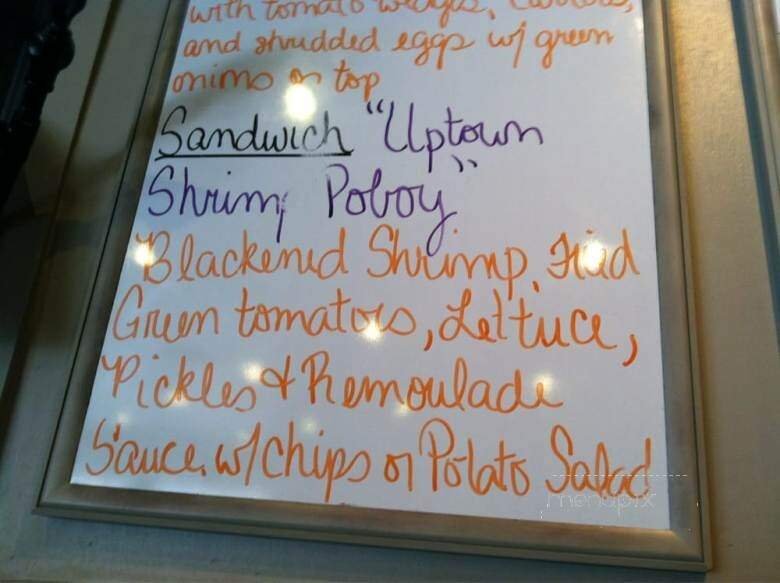 with tomato wedges,
and shredded eggs w/ green
onions on top
Sandwich "Uptown
Shrimp Poboy"
Blackened Shrimp, Fried
Green tomatoes, Lettuce,
Pickles & Remoulade
Sauce w/ chips or Potato Salad
menupix